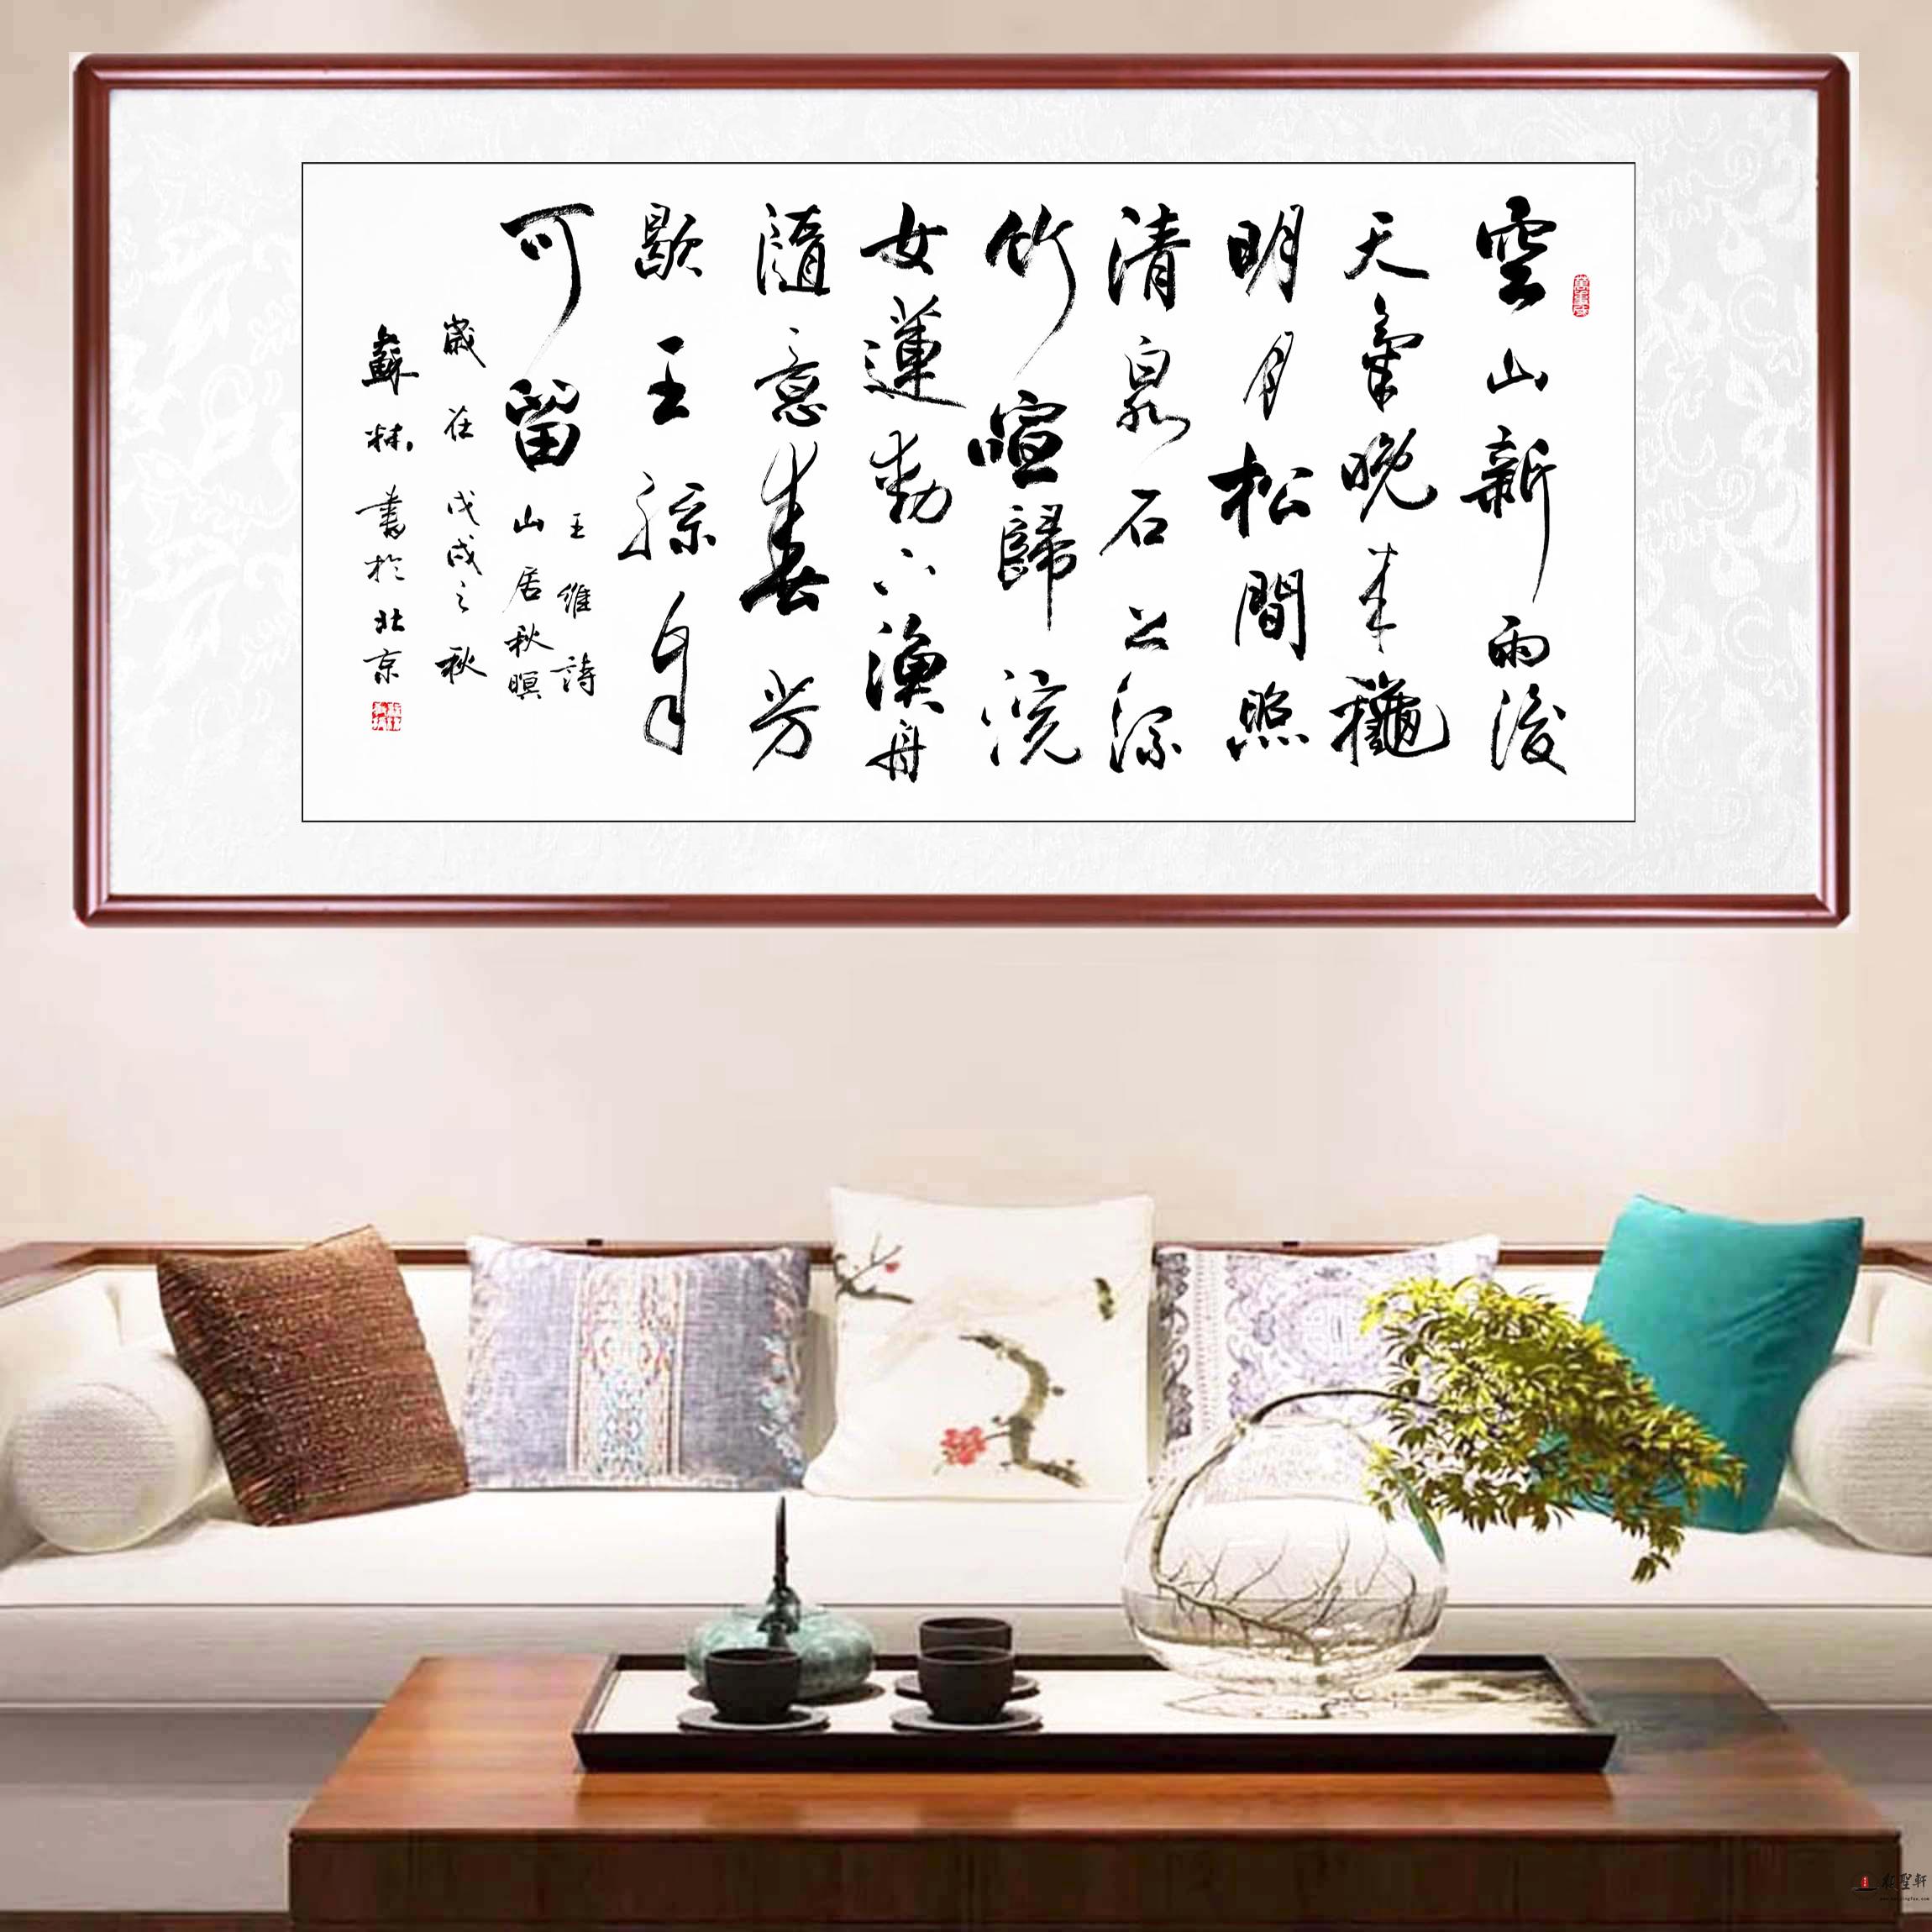 空山新雨後
天氣晚来穐
明月松間照
清泉石上流
竹喧歸浣
女蓮動下漁舟
隨意春芳
歇王孫自
可留
王維詩
山居秋暝
歲在戊戌之秋
蘇 書於北京